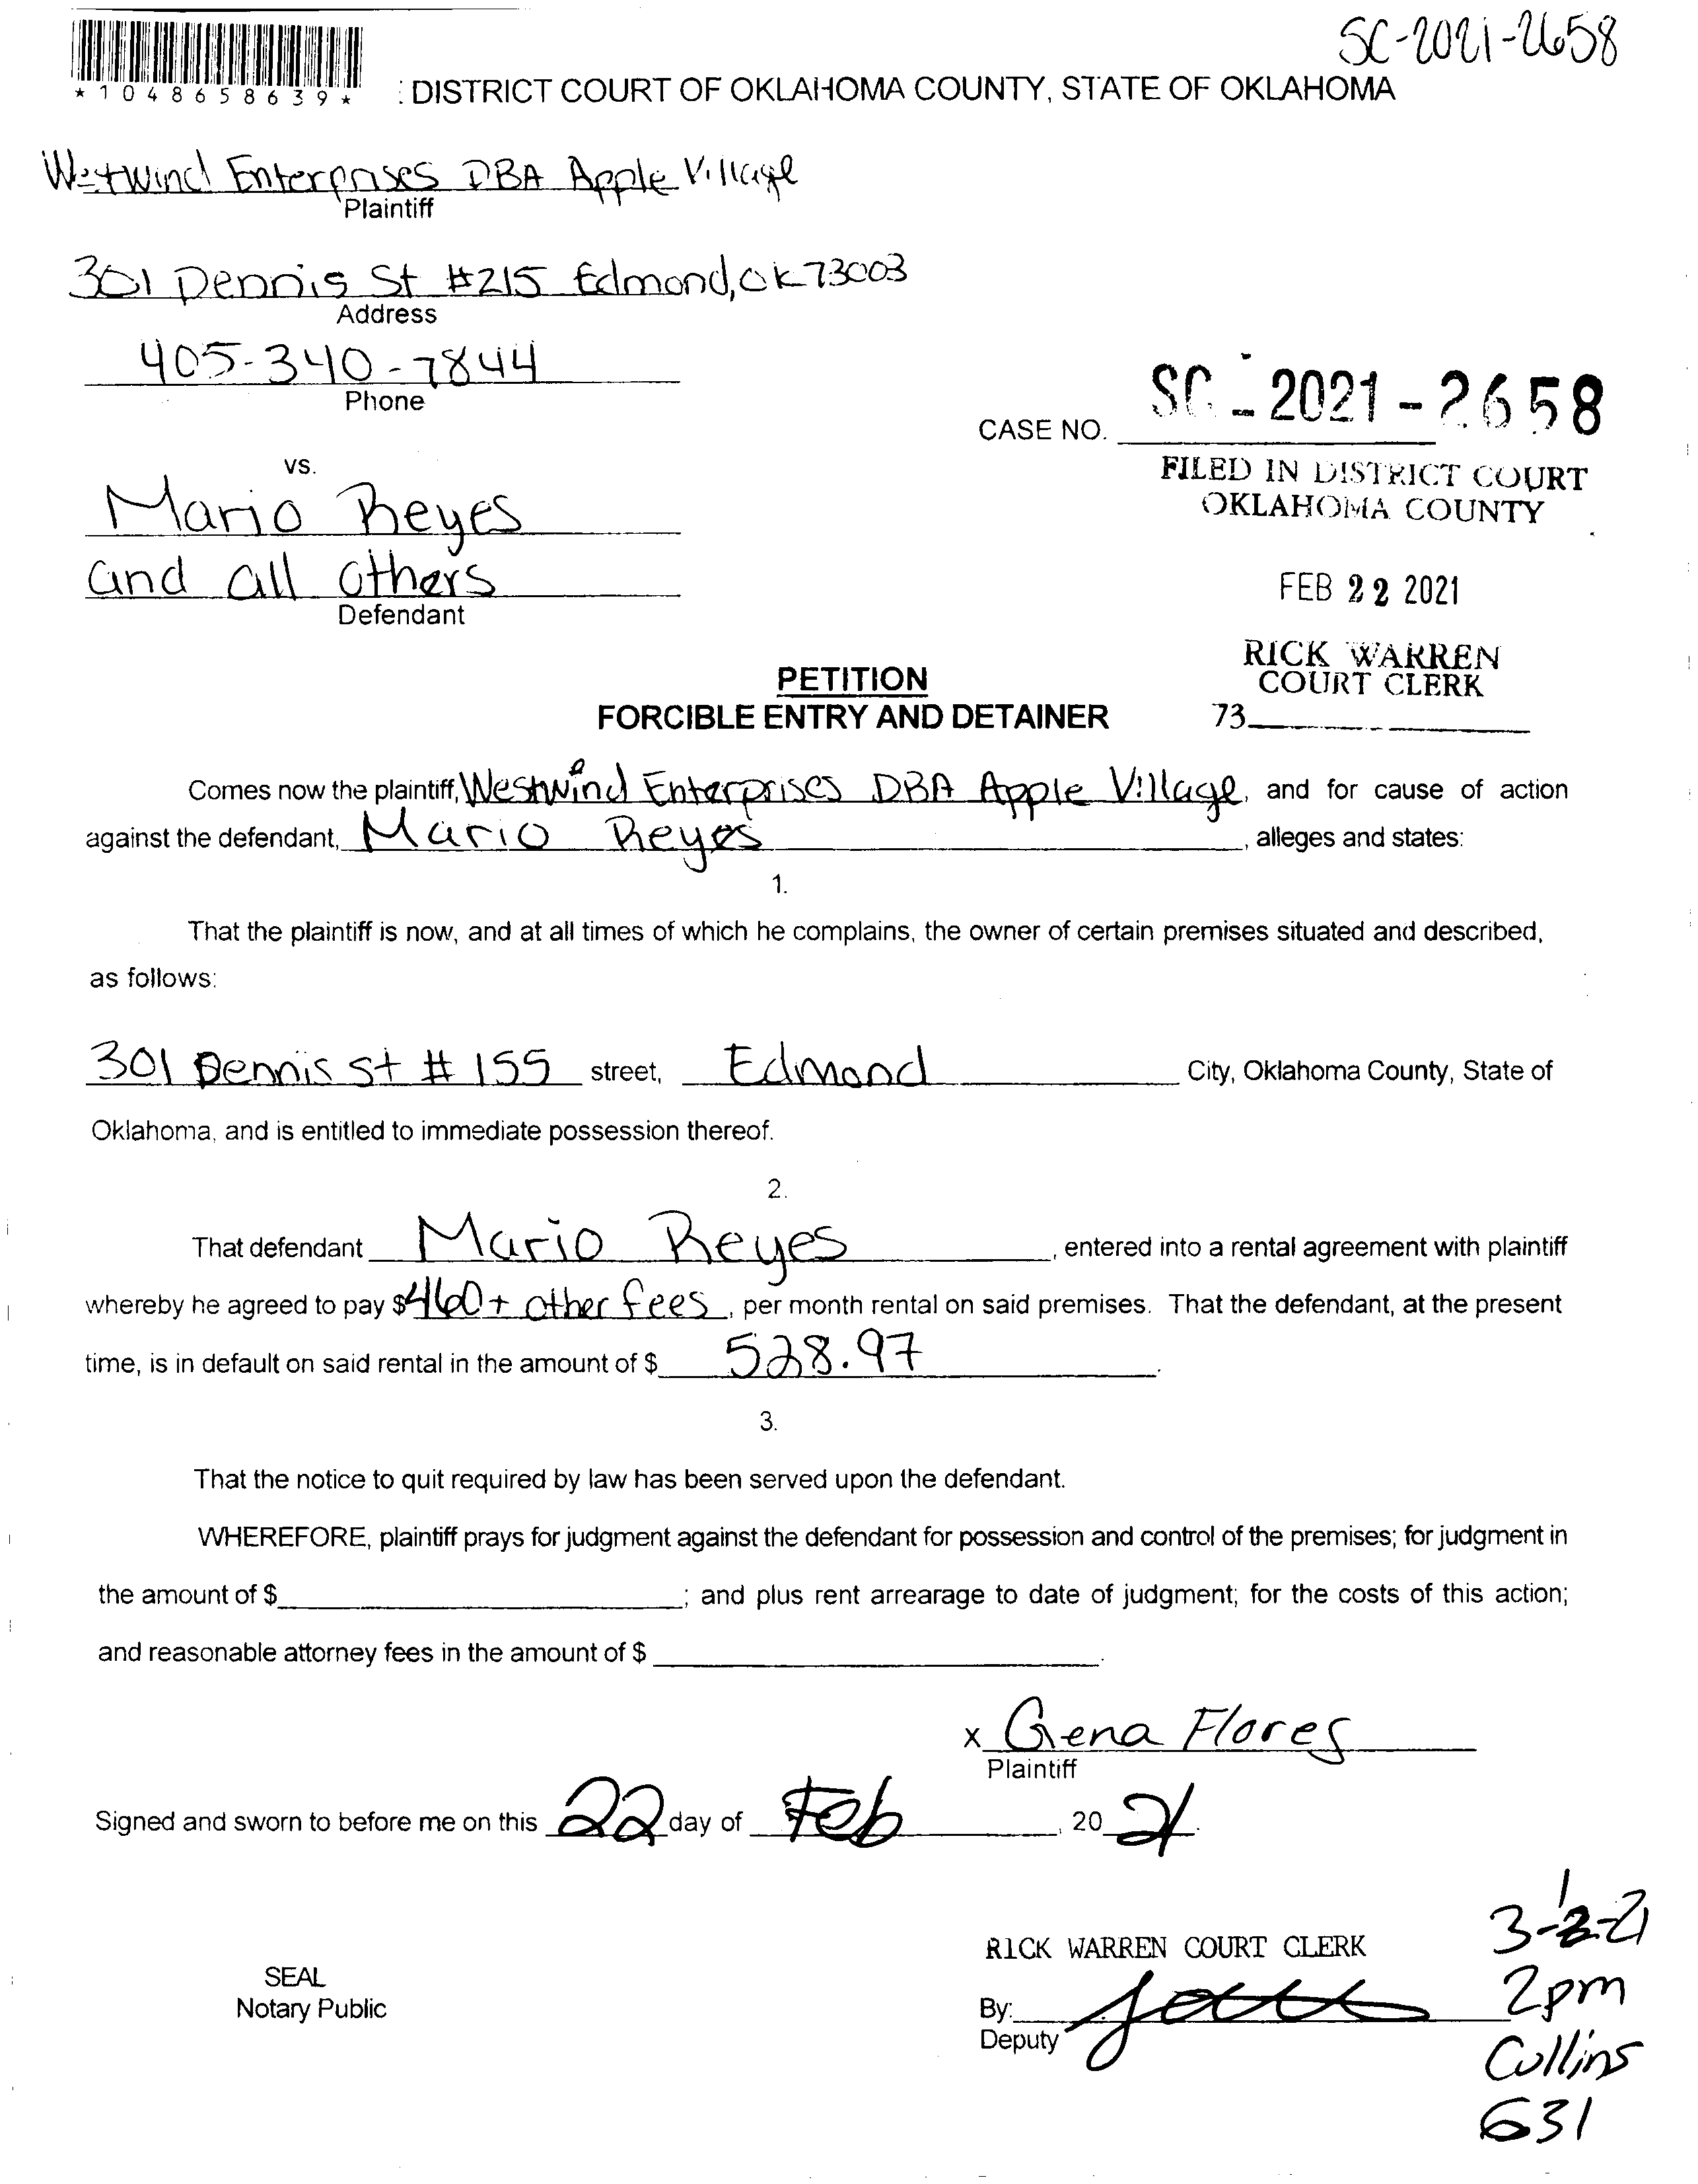 SC-2021-2658
*1048658639*
: DISTRICT COURT OF OKLAHOMA COUNTY, STATE OF OKLAHOMA
Westwind Enterprises DBA Apple Village
Plaintiff
301 Dennis St #215 Edmond, OK 73003
Address
405-340-7844
Phone
SC - 2021 - 2658
CASE NO.
vs.
FILED IN DISTRICT COURT
OKLAHOMA COUNTY
Mario Reyes
and all others
Defendant
FEB 22 2021
RICK WARREN
COURT CLERK
73
PETITION
FORCIBLE ENTRY AND DETAINER
Comes now the plaintiff, Westwind Enterprises DBA Apple Village, and for cause of action
against the defendant, Mario Reyes, alleges and states:
1.
That the plaintiff is now, and at all times of which he complains, the owner of certain premises situated and described,
as follows:
301 Dennis St # 155 street, Edmond City, Oklahoma County, State of
Oklahoma, and is entitled to immediate possession thereof.
2.
That defendant Mario Reyes, entered into a rental agreement with plaintiff
whereby he agreed to pay $460 + other fees, per month rental on said premises. That the defendant, at the present
time, is in default on said rental in the amount of $ 528.97.
3.
That the notice to quit required by law has been served upon the defendant.
WHEREFORE, plaintiff prays for judgment against the defendant for possession and control of the premises; for judgment in
the amount of $; and plus rent arrearage to date of judgment; for the costs of this action;
and reasonable attorney fees in the amount of $.
x Gena Flores
Plaintiff
Signed and sworn to before me on this 22 day of Feb, 20 21.
RICK WARREN COURT CLERK
SEAL
Notary Public
By:
Deputy
3-1-21
2pm
Collins
631